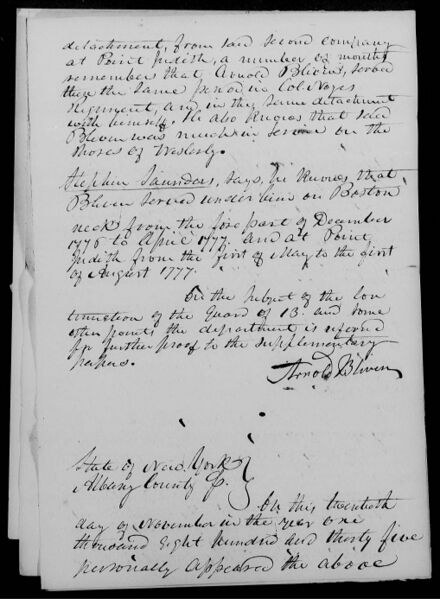 detachment, from said second company
at Point Judith, a number of months
remember that Arnold Bliven, served
there the same period in Col Noyes
regiment, and in the same detachment
with himself. He also knows that said
Bliven was much in service on the
shores of Westerly.
Stephen Saunders, says, he knows, that
Bliven served under him on Boston
neck from the fore part of December
1776 to April 1777. and at Point
Judith from the first of May to the first
of August 1777.
On the subject of the con
tinuation of the Guard of 13. and some
other points the department is referred
for further proof to the supplementary
papers.
Arnold Bliven
State of New York
Albany County Ss.
On this twentieth
day of November in the year one
thousand eight hundred and thirty five
personally appeared the above